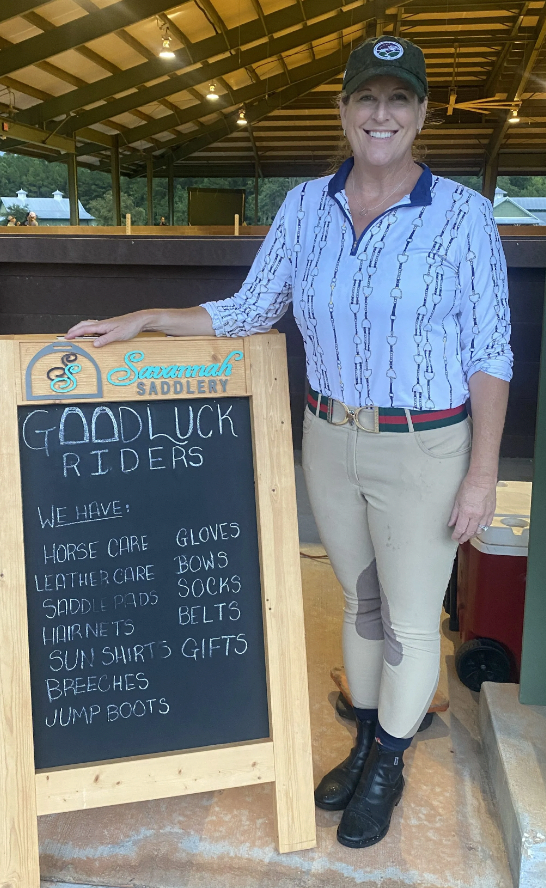 Savannah
SADDLERY
GOODLUCK
RIDERS
WE HAVE:
HORSE CARE
LEATHER CARE
SADDLE PADS
HAIRNETS
SUN SHIRTS
BREECHES
JUMP BOOTS
GLOVES
BOWS
SOCKS
BELTS
GIFTS